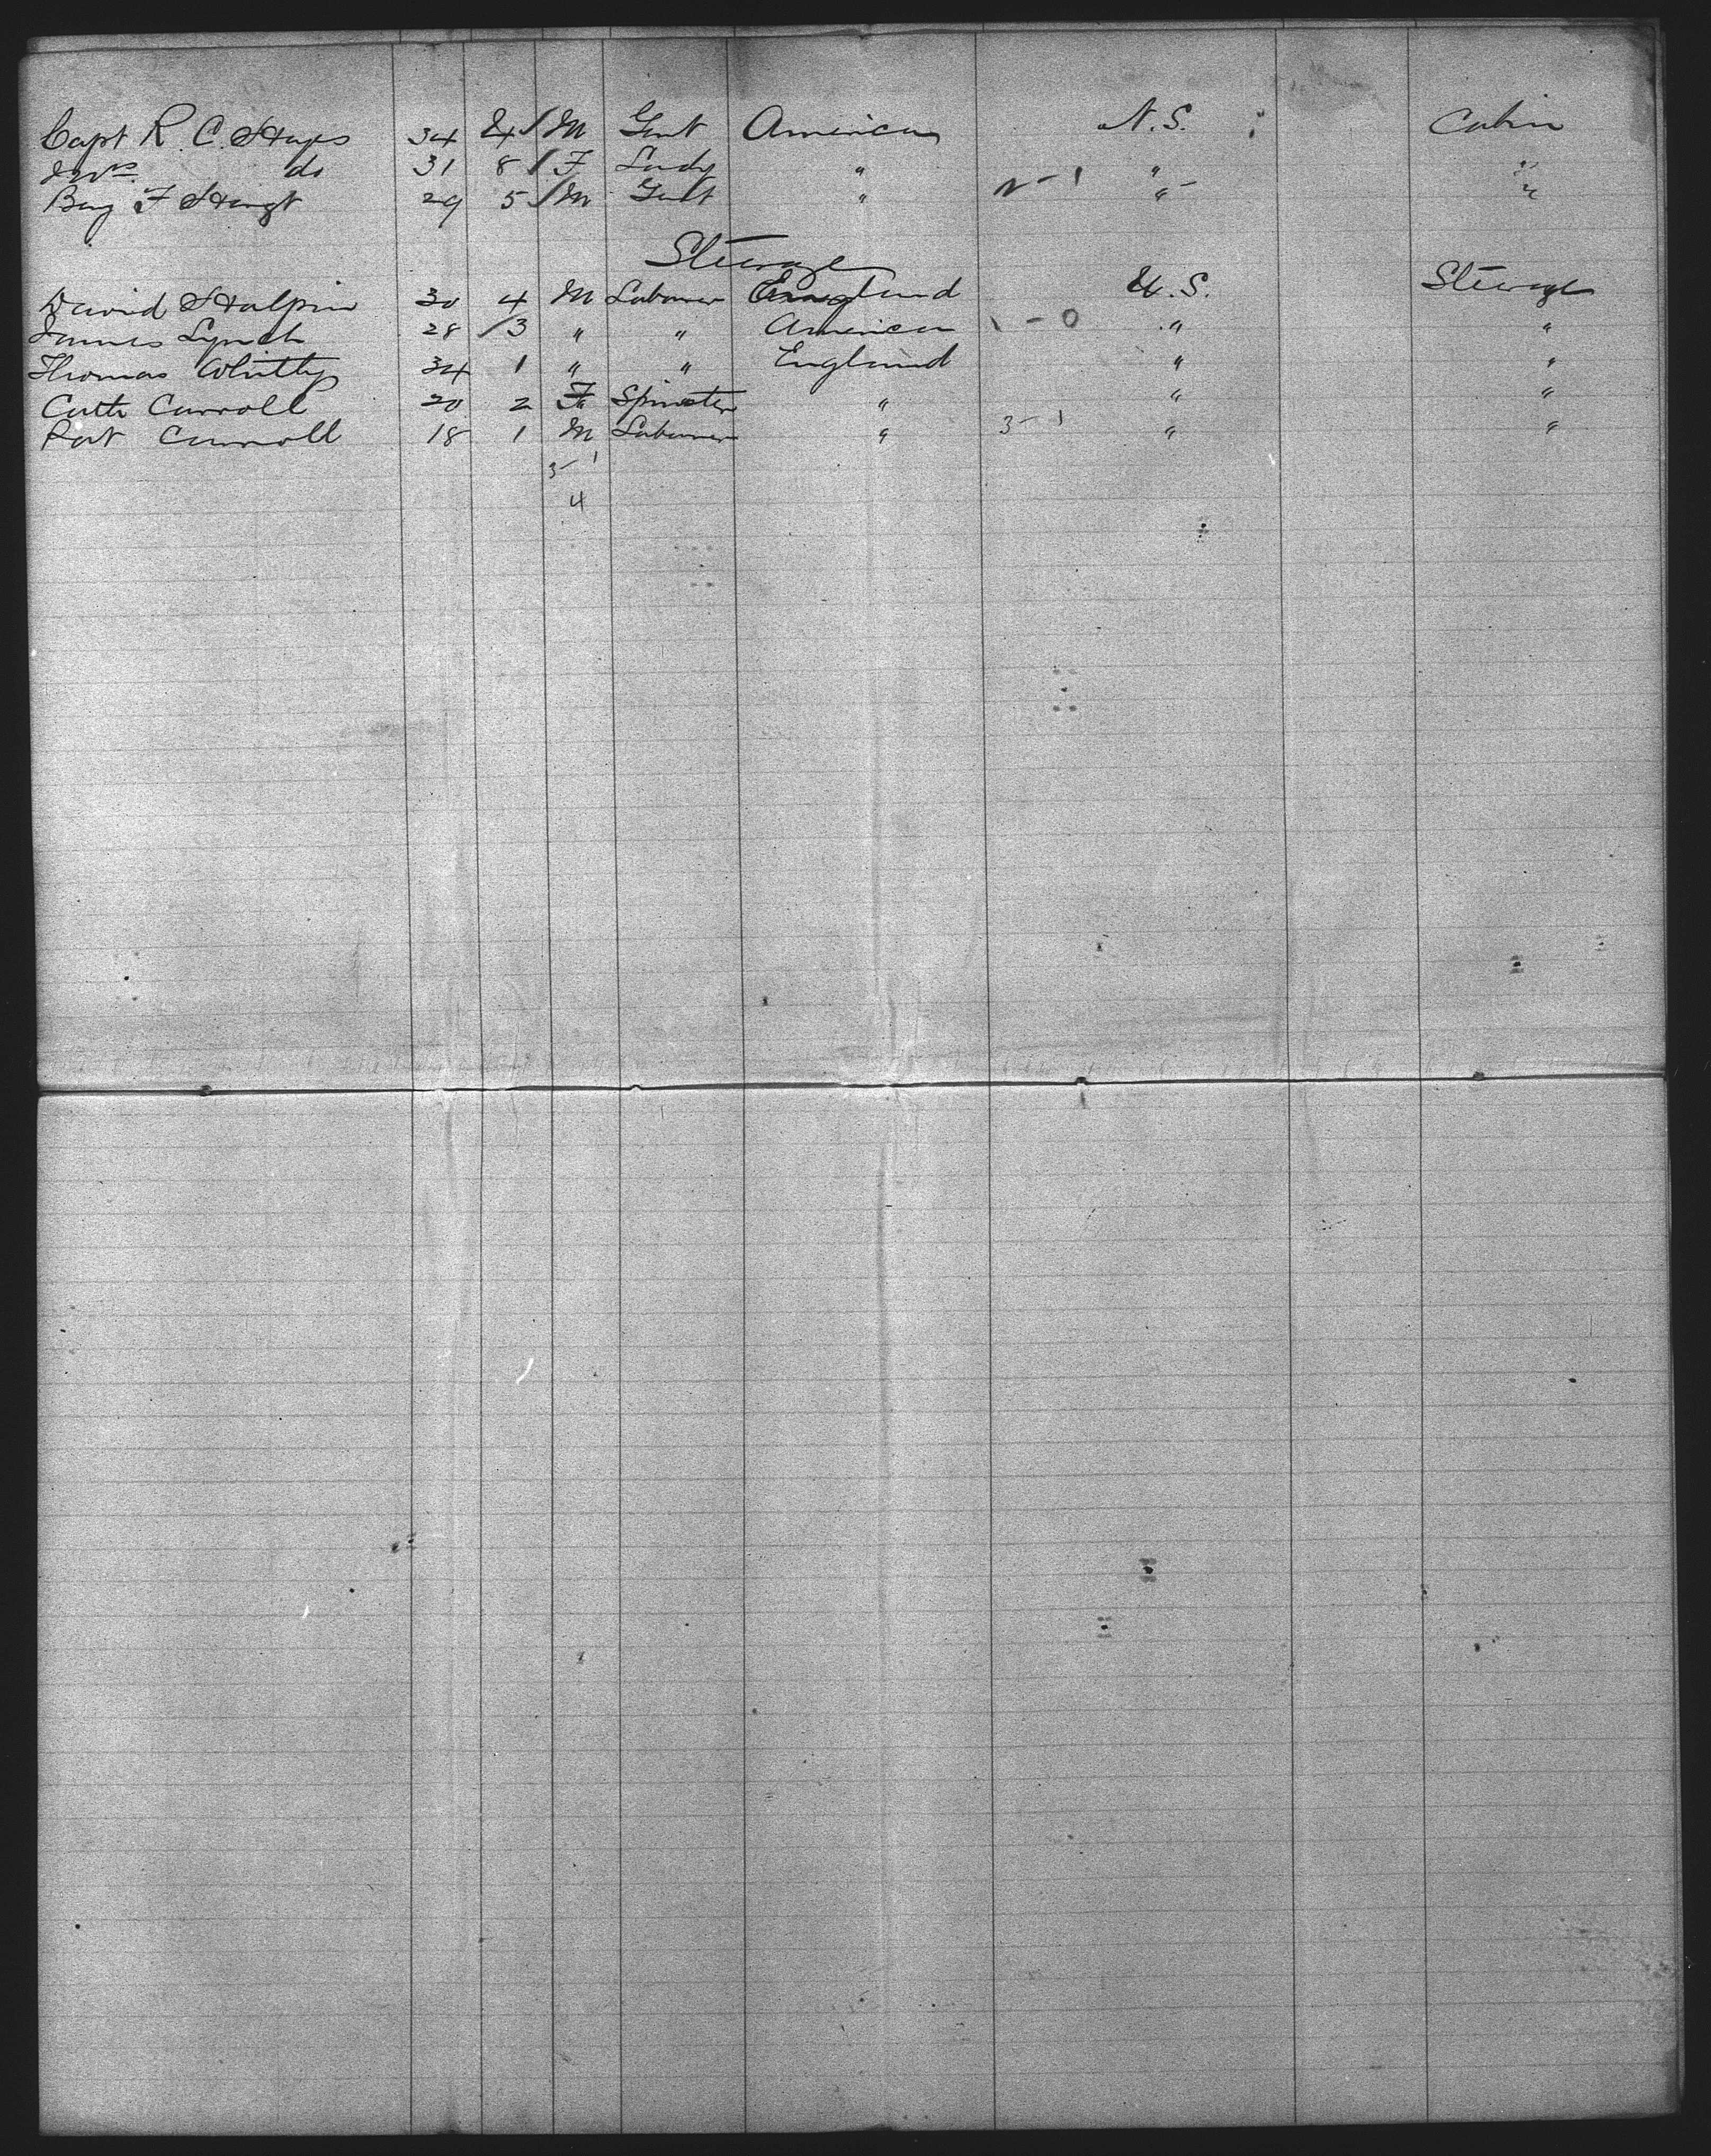 Capt R. C. Hayes 34 4 / M Gent American N. S. Cabin
Mrs. do 31 8 / F Lady " " "
Benj F Hoyt 29 5 / M Gent " 2 - 1 " "
Steerage
David Halpin 30 4 M Labourer England U. S. Steerage
James Lynch 28 /3 " " American 1 - 0 " "
Thomas Whitty 34 1 " " England " "
Cath Carroll 20 2 F Spinster " " "
Pat Carroll 18 1 M Labourer " 3 - 1 " "
3 - 1
4